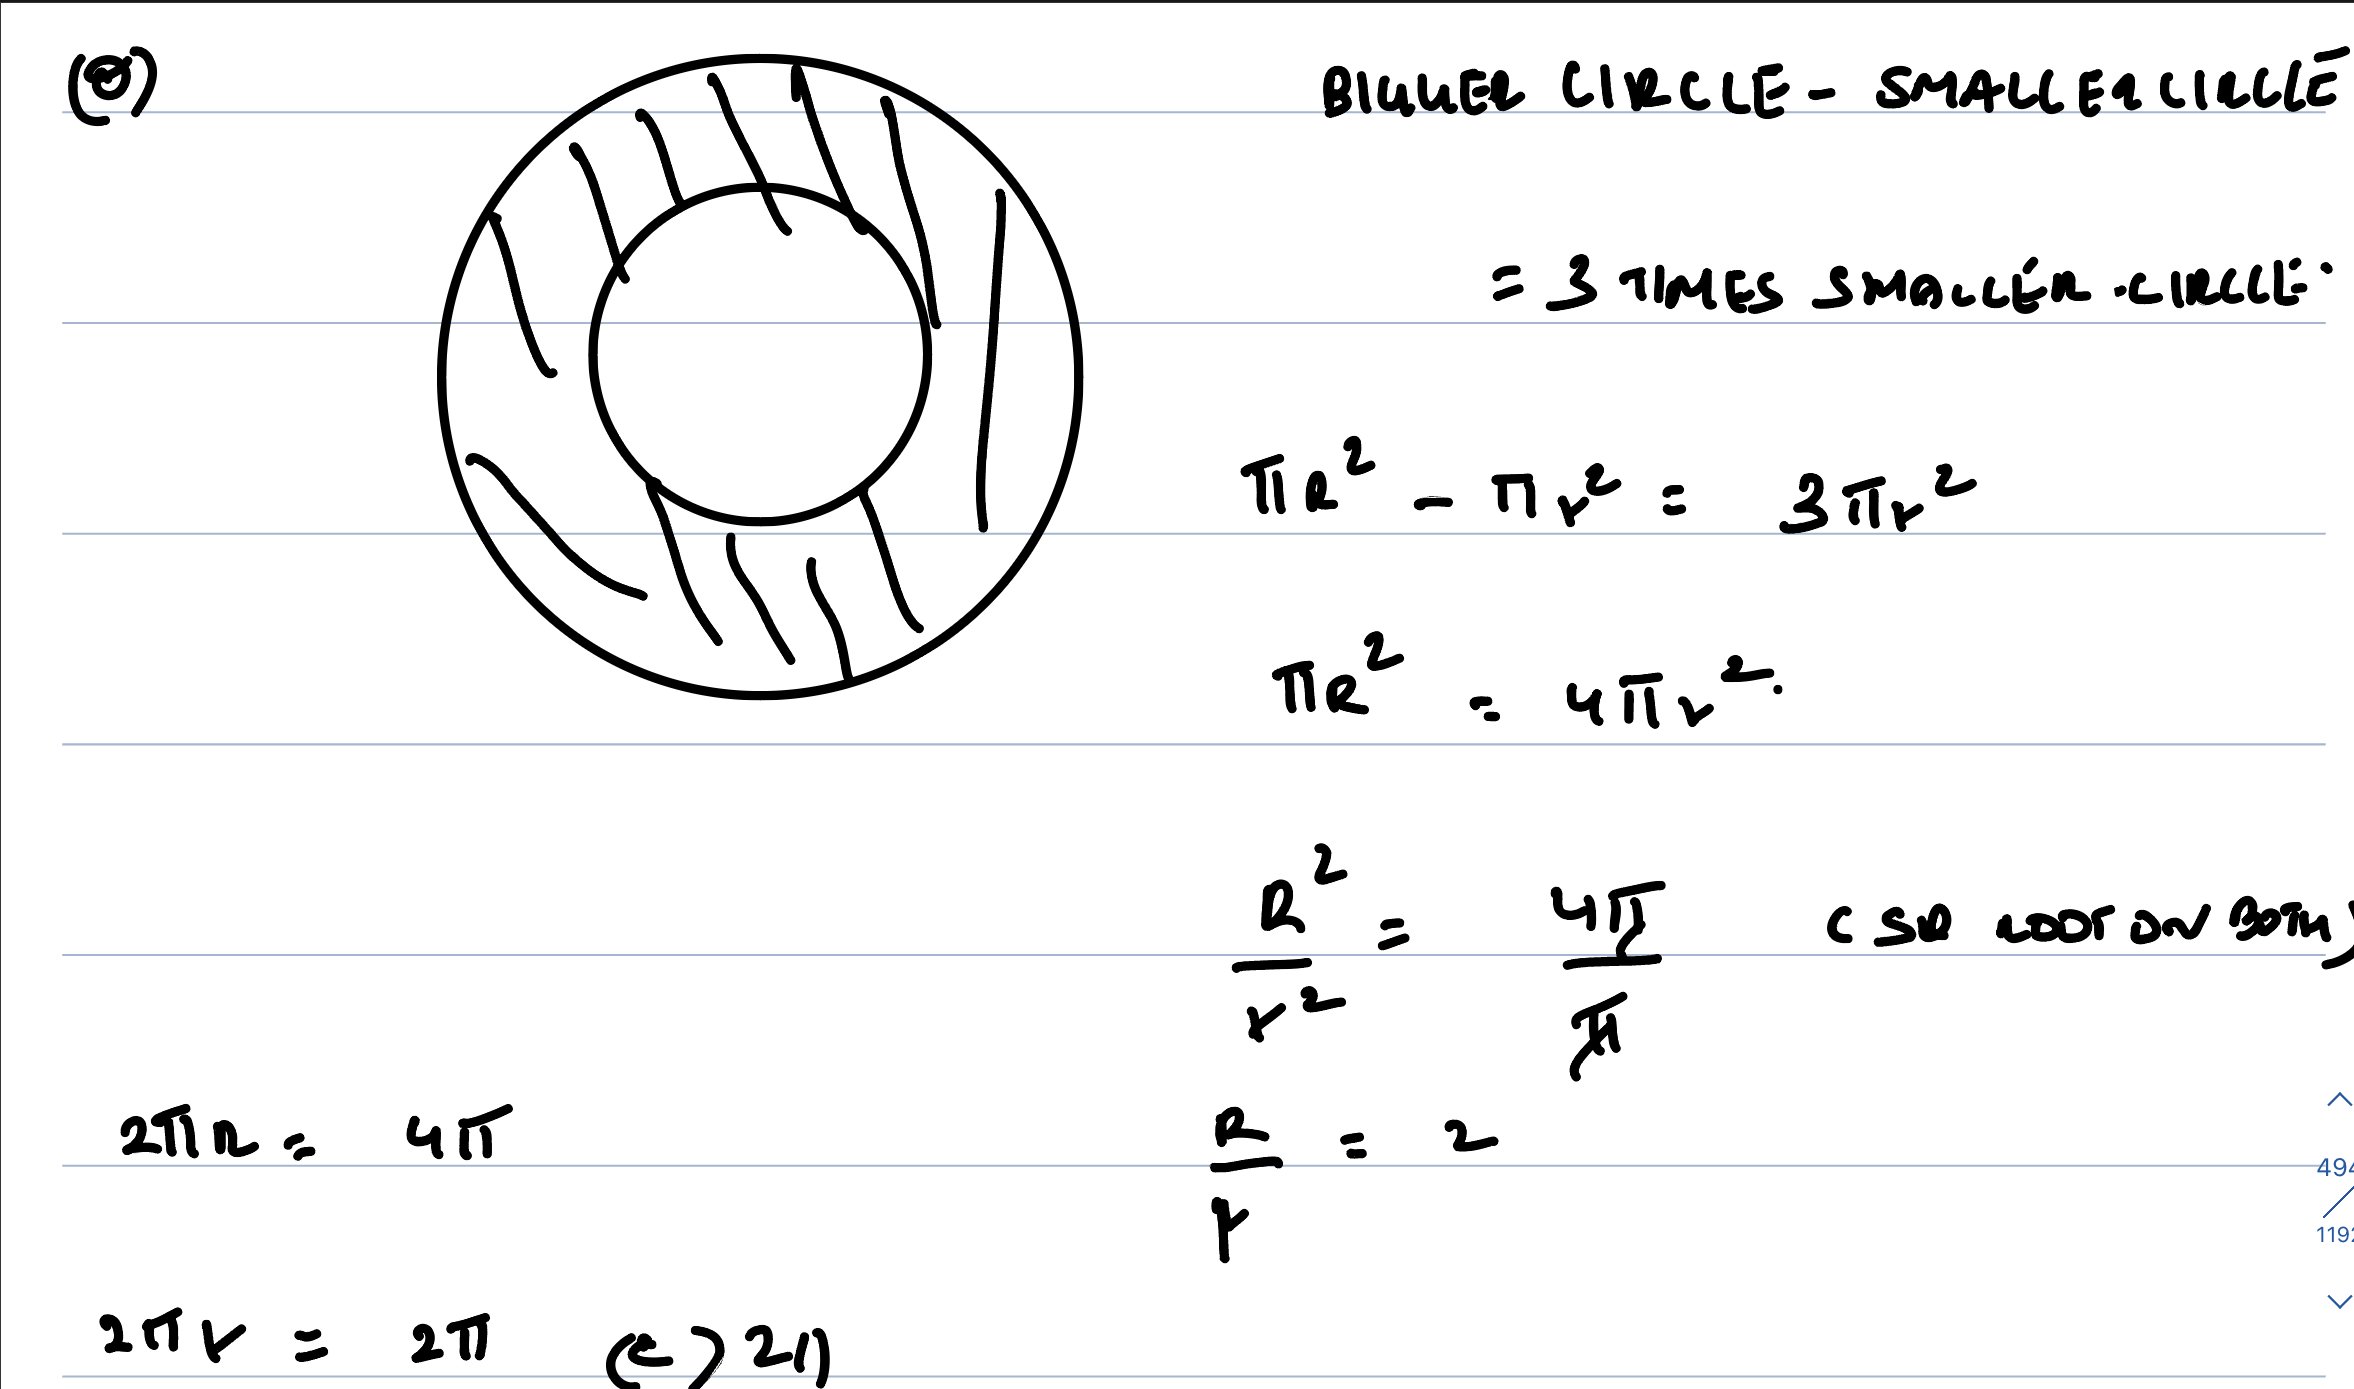 (Q)
BIGGER CIRCLE - SMALLER CIRCLE
= 3 TIMES SMALLER CIRCLE.
πR² - πr² = 3πr²
πR² = 4πr².
R²/r² = 4π/π (SQ ROOT ON BOTH)
2πR = 4π
R/r = 2
494
/
1192
2πr = 2π (c) 2:1)